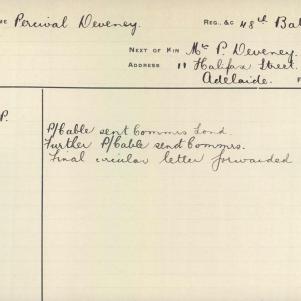 ME Percival Deveney. REG., &C 48th Bat
NEXT OF KIN Mr P. Deveney.
ADDRESS 11 Halifax Street.
Adelaide.
P.
P/Cable sent Commrs Lond.
Further P/Cable sent Commrs.
Final circular letter forwarded